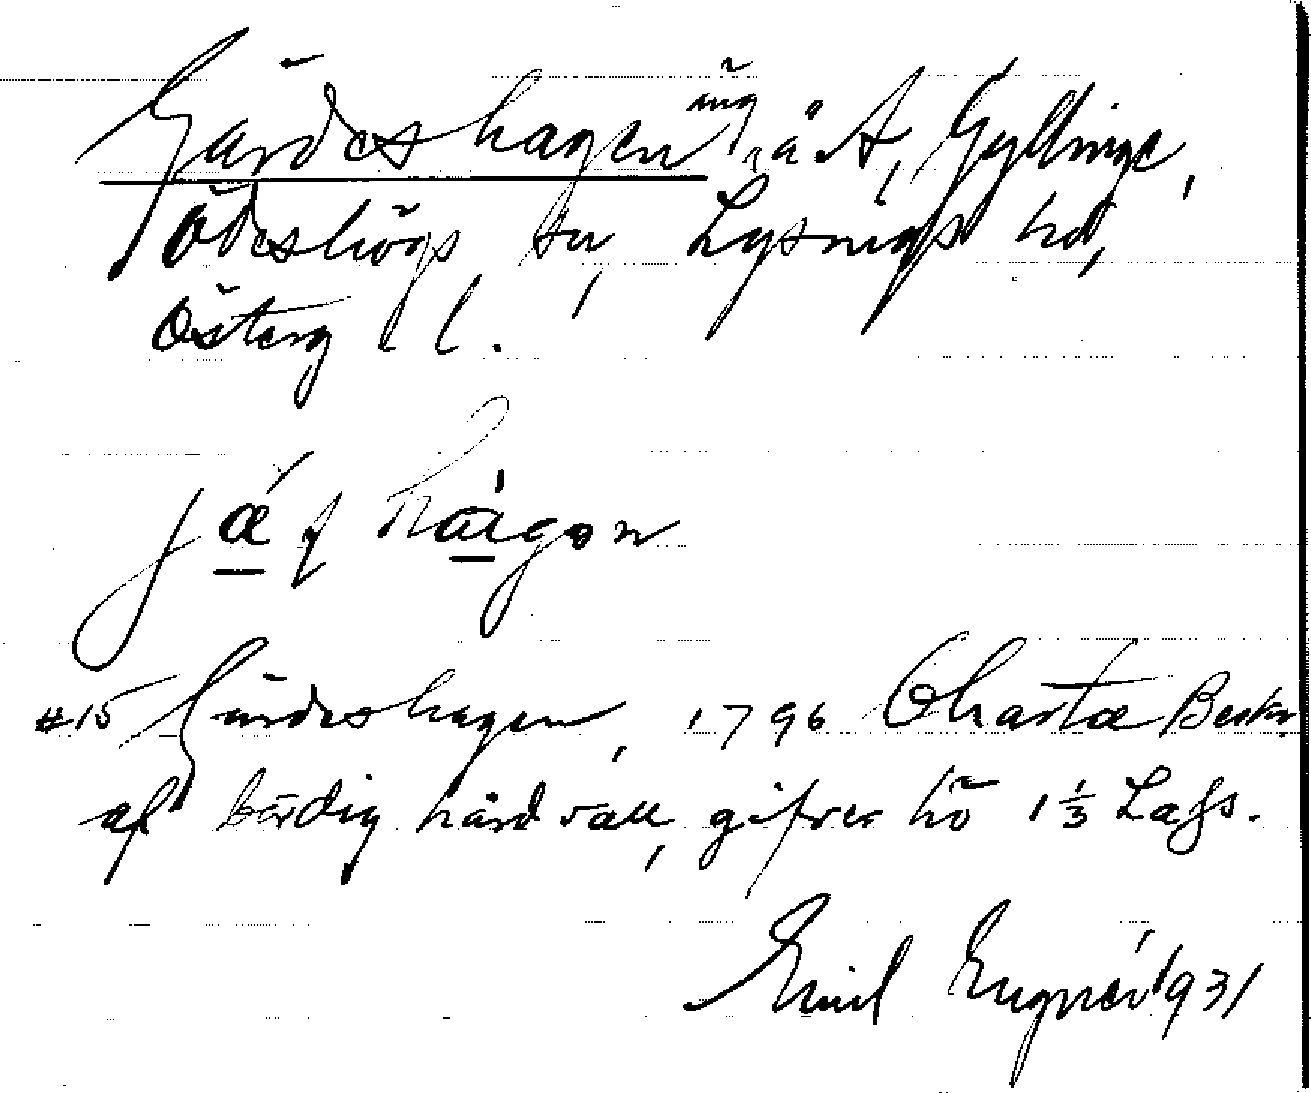 Gärdeshagen, äng å A, Gyllinge,
Ödeshögs sn, Lysings hd,
Österg l.
jæ´ɾ hа̄gon
#15 Gärdeshagen, 1796 Charta Beskr.
af bördig hårdvall, gifver hö 1 1/3 Lass.
Emil Engnér 1931